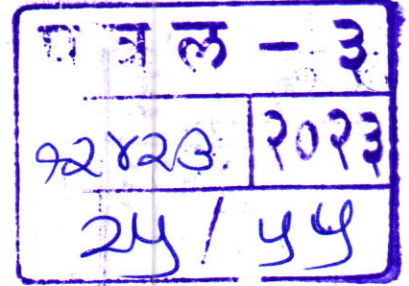 पवल - ३
१२४२७ २०२३
२५ / ५५